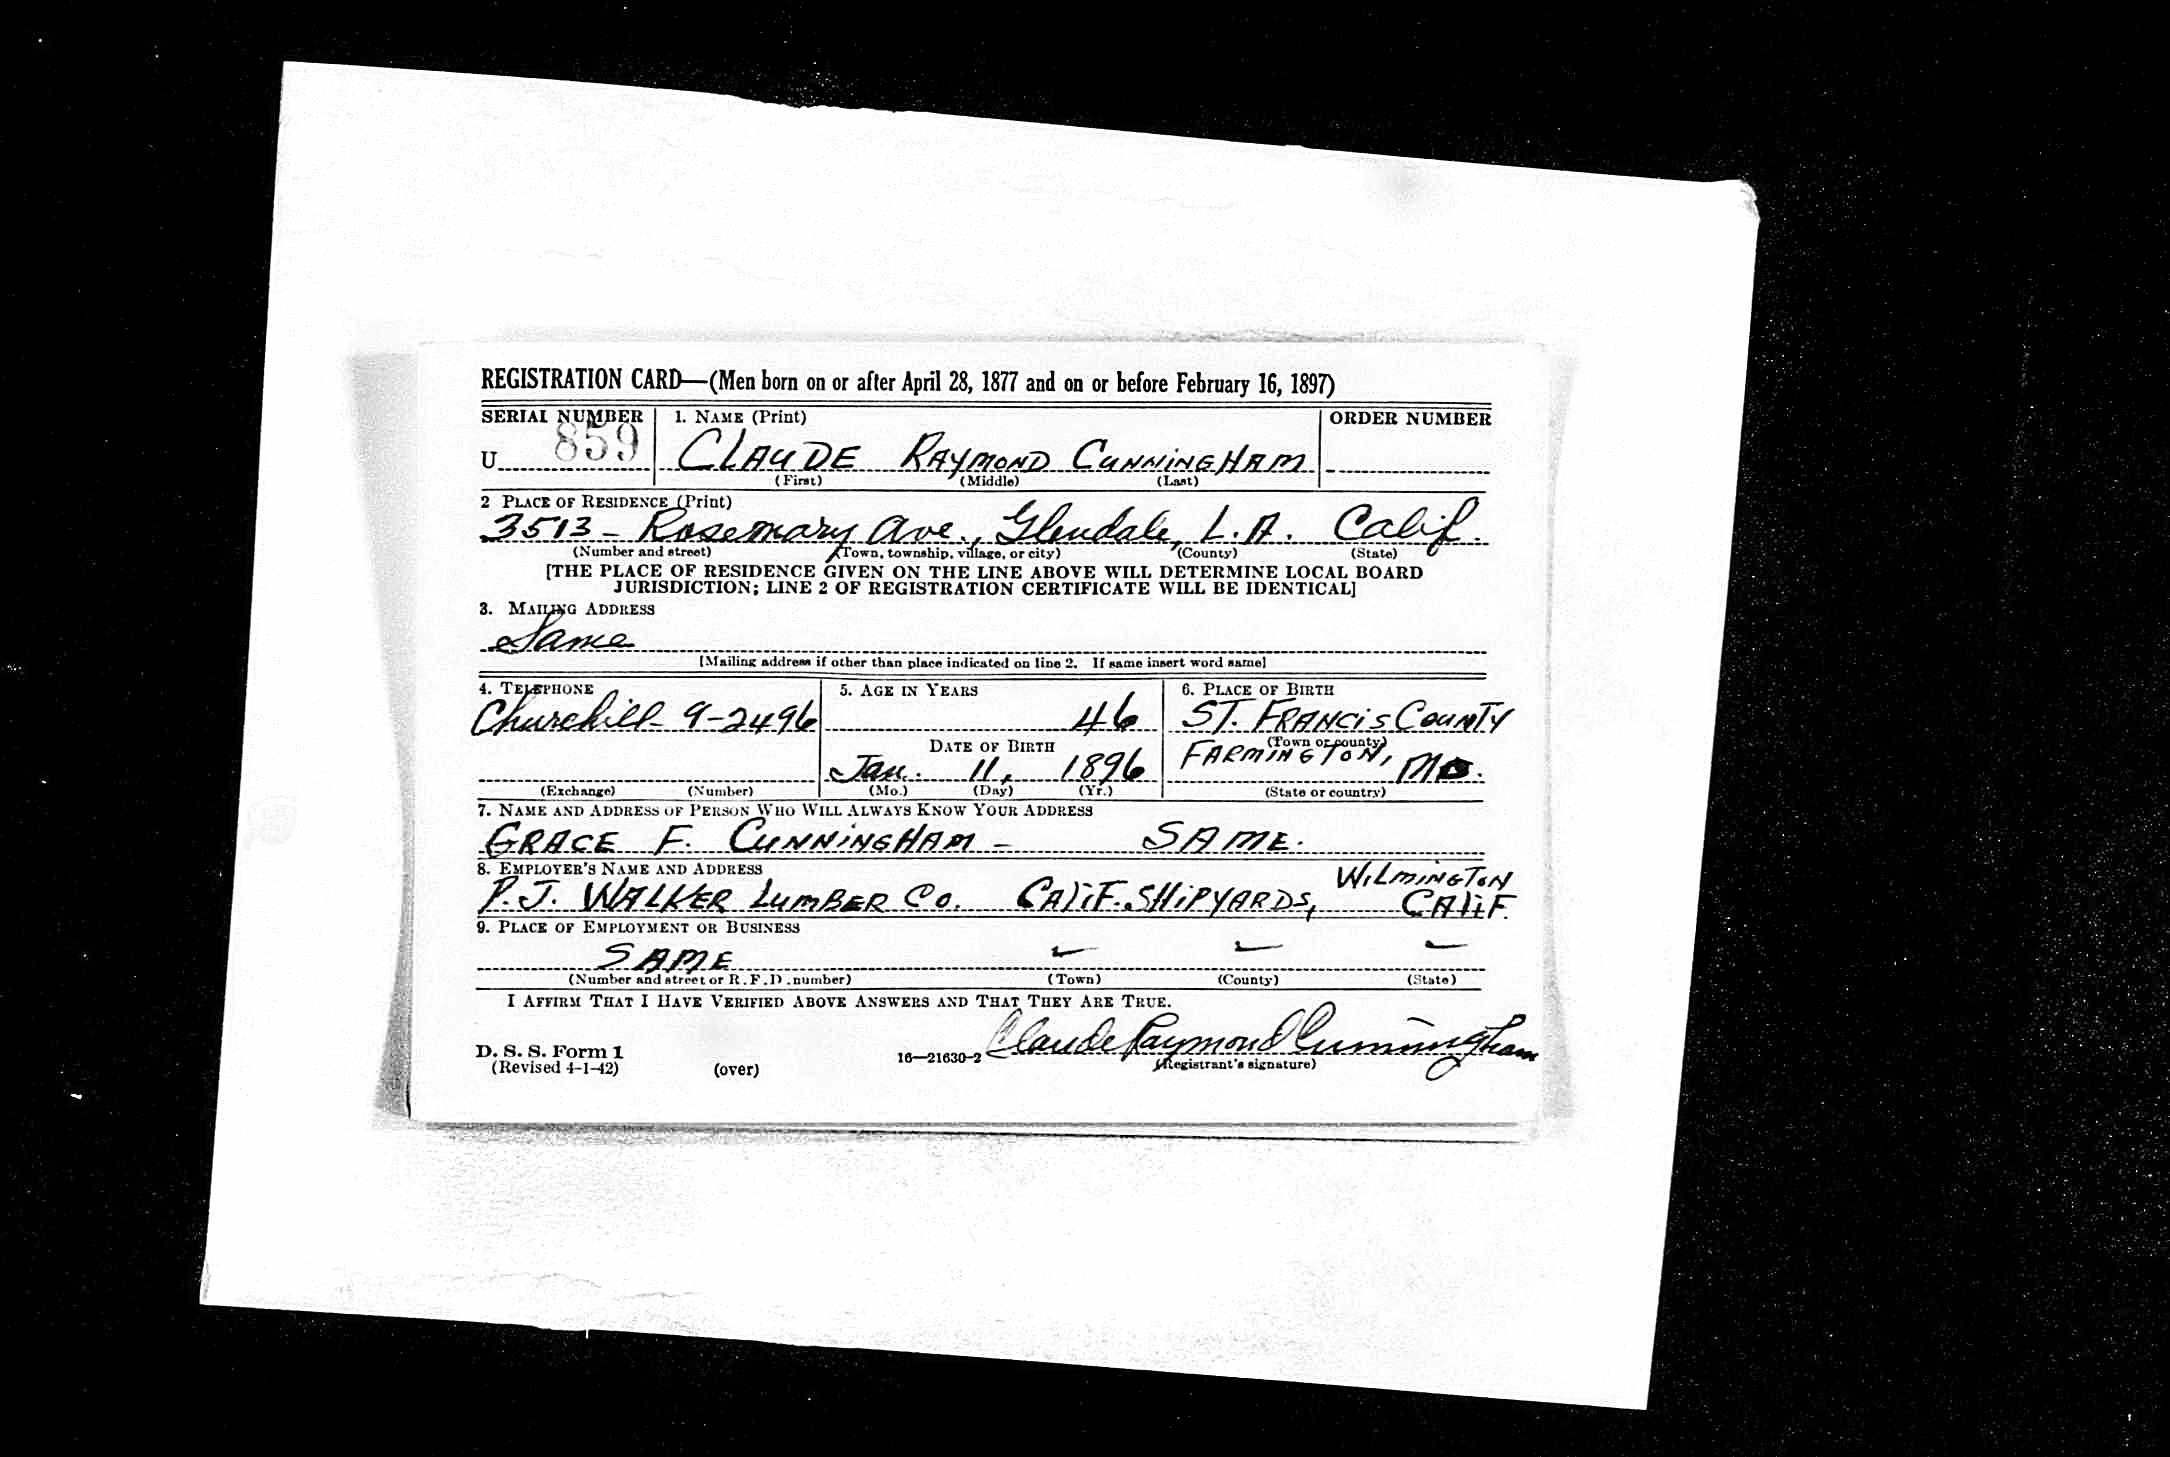 REGISTRATION CARD—(Men born on or after April 28, 1877 and on or before February 16, 1897)
SERIAL NUMBER 1. NAME (Print) ORDER NUMBER
U 859 CLAUDE RAYMOND CUNNINGHAM
(First) (Middle) (Last)
2 PLACE OF RESIDENCE (Print)
3513 - Rosemary Ave., Glendale, L.A. Calif.
(Number and street) (Town, township, village, or city) (County) (State)
[THE PLACE OF RESIDENCE GIVEN ON THE LINE ABOVE WILL DETERMINE LOCAL BOARD
JURISDICTION; LINE 2 OF REGISTRATION CERTIFICATE WILL BE IDENTICAL]
3. MAILING ADDRESS
Same
[Mailing address if other than place indicated on line 2. If same insert word same]
4. TELEPHONE 5. AGE IN YEARS 6. PLACE OF BIRTH
Churchill- 9-2496 46 ST. FRANCIS COUNTY
DATE OF BIRTH (Town or county)
Jan. 11, 1896 FARMINGTON, MO.
(Exchange) (Number) (Mo.) (Day) (Yr.) (State or country)
7. NAME AND ADDRESS OF PERSON WHO WILL ALWAYS KNOW YOUR ADDRESS
GRACE F. CUNNINGHAM - SAME.
8. EMPLOYER'S NAME AND ADDRESS
P.J. WALKER LUMBER CO. CALIF. SHIPYARDS, WILMINGTON
CALIF.
9. PLACE OF EMPLOYMENT OR BUSINESS
SAME
(Number and street or R.F.D. number) (Town) (County) (State)
I AFFIRM THAT I HAVE VERIFIED ABOVE ANSWERS AND THAT THEY ARE TRUE.
Claude Raymond Cunningham
D. S. S. Form 1 16—21630-2 (Registrant's signature)
(Revised 4-1-42) (over)